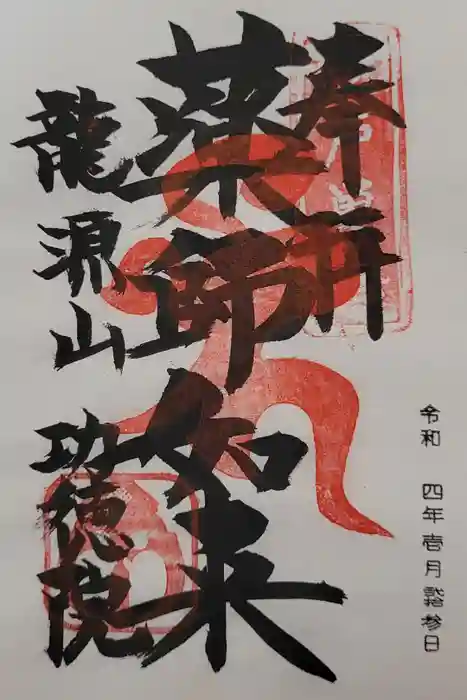 奉拝
薬師如来
龍源山 功徳院
令和 四年壱月弐拾参日